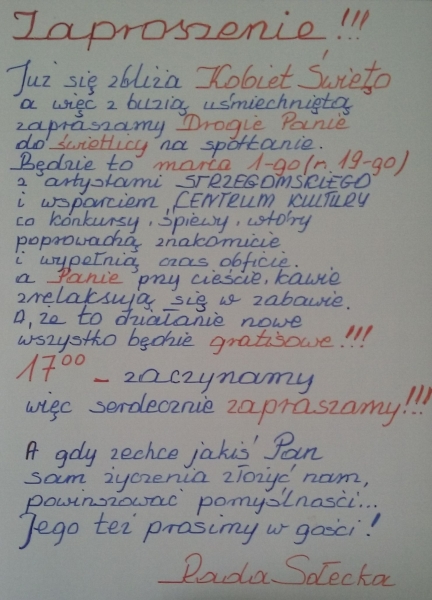 Zaproszenie!!!
Już się zbliża Kobiet Święto
a więc z buzią uśmiechniętą
zapraszamy Drogie Panie
do świetlicy na spotkanie.
Będzie to marca 1-go (r. 19-go)
z artystami STRZEGOMSKIEGO
i wsparciem, CENTRUM KULTURY
co konkursy, śpiewy, wtóry
poprowadzą znakomicie
i wypełnią czas obficie.
a Panie przy cieście, kawie
zrelaksują się w zabawie.
A, że to działanie nowe
wszystko będzie gratisowe!!!
17⁰⁰ - zaczynamy
więc serdecznie zapraszamy!!!
A gdy zechce jakiś Pan
sam życzenia złożyć nam,
powinszować pomyślności...
Jego też prosimy w gości!
Rada Sołecka